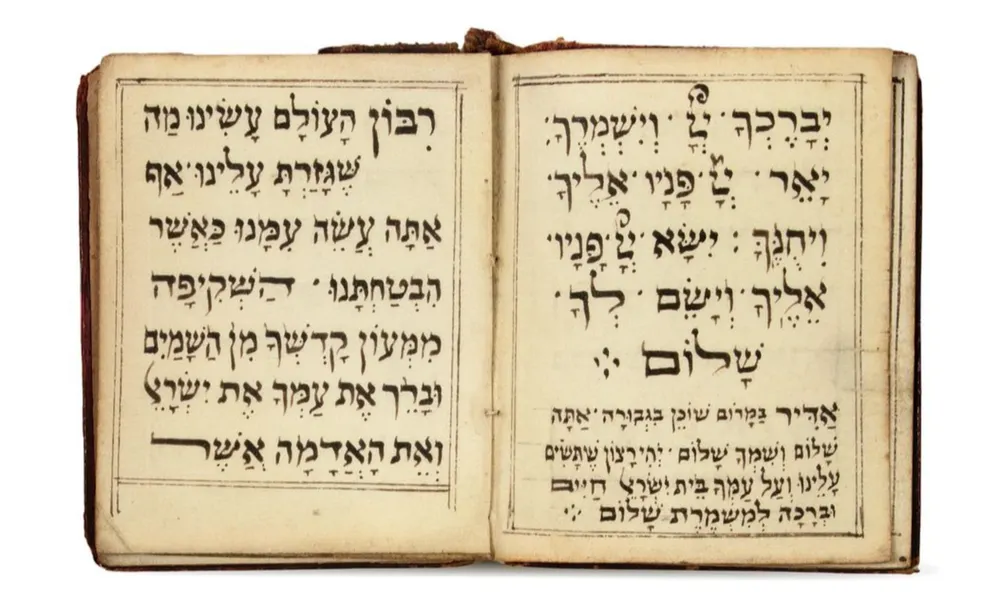 יְבָרֶכְךָ · יְיָ · וְיִשְׁמְרֶךָ ·
יָאֵר · יְיָ · פָּנָיו · אֵלֶיךָ
וִיחֻנֶּךָּ : יִשָּׂא · יְיָ · פָּנָיו ·
אֵלֶיךָ · וְיָשֵׂם · לְךָ ·
שָׁלוֹם
אַדִּיר בַּמָּרוֹם שׁוֹכֵן בִּגְבוּרָה · אַתָּה
שָׁלוֹם וְשִׁמְךָ שָׁלוֹם · יְהִי רָצוֹן שֶׁתָּשִׂים
עָלֵינוּ וְעַל עַמְּךָ בֵּית יִשְׂרָﭏ חַיִּים
וּבְרָכָה לְמִשְׁמֶרֶת שָׁלוֹם
רִבּוֹן הָעוֹלָם עָשִׂינוּ מַה
שֶּׁגָּזַרְתָּ עָלֵינוּ · אַף
אַתָּה עֲשֵׂה עִמָּנוּ כַּאֲשֶׁר
הִבְטַחְתָּנוּ · הַשְׁקִיפָה
מִמְּעוֹן קָדְשְׁךָ מִן הַשָּׁמַיִם
וּבָרֵךְ אֶת עַמְּךָ אֶת יִשְׂרָﭏ
וְאֵת הָאֲדָמָה אֲשֶׁר